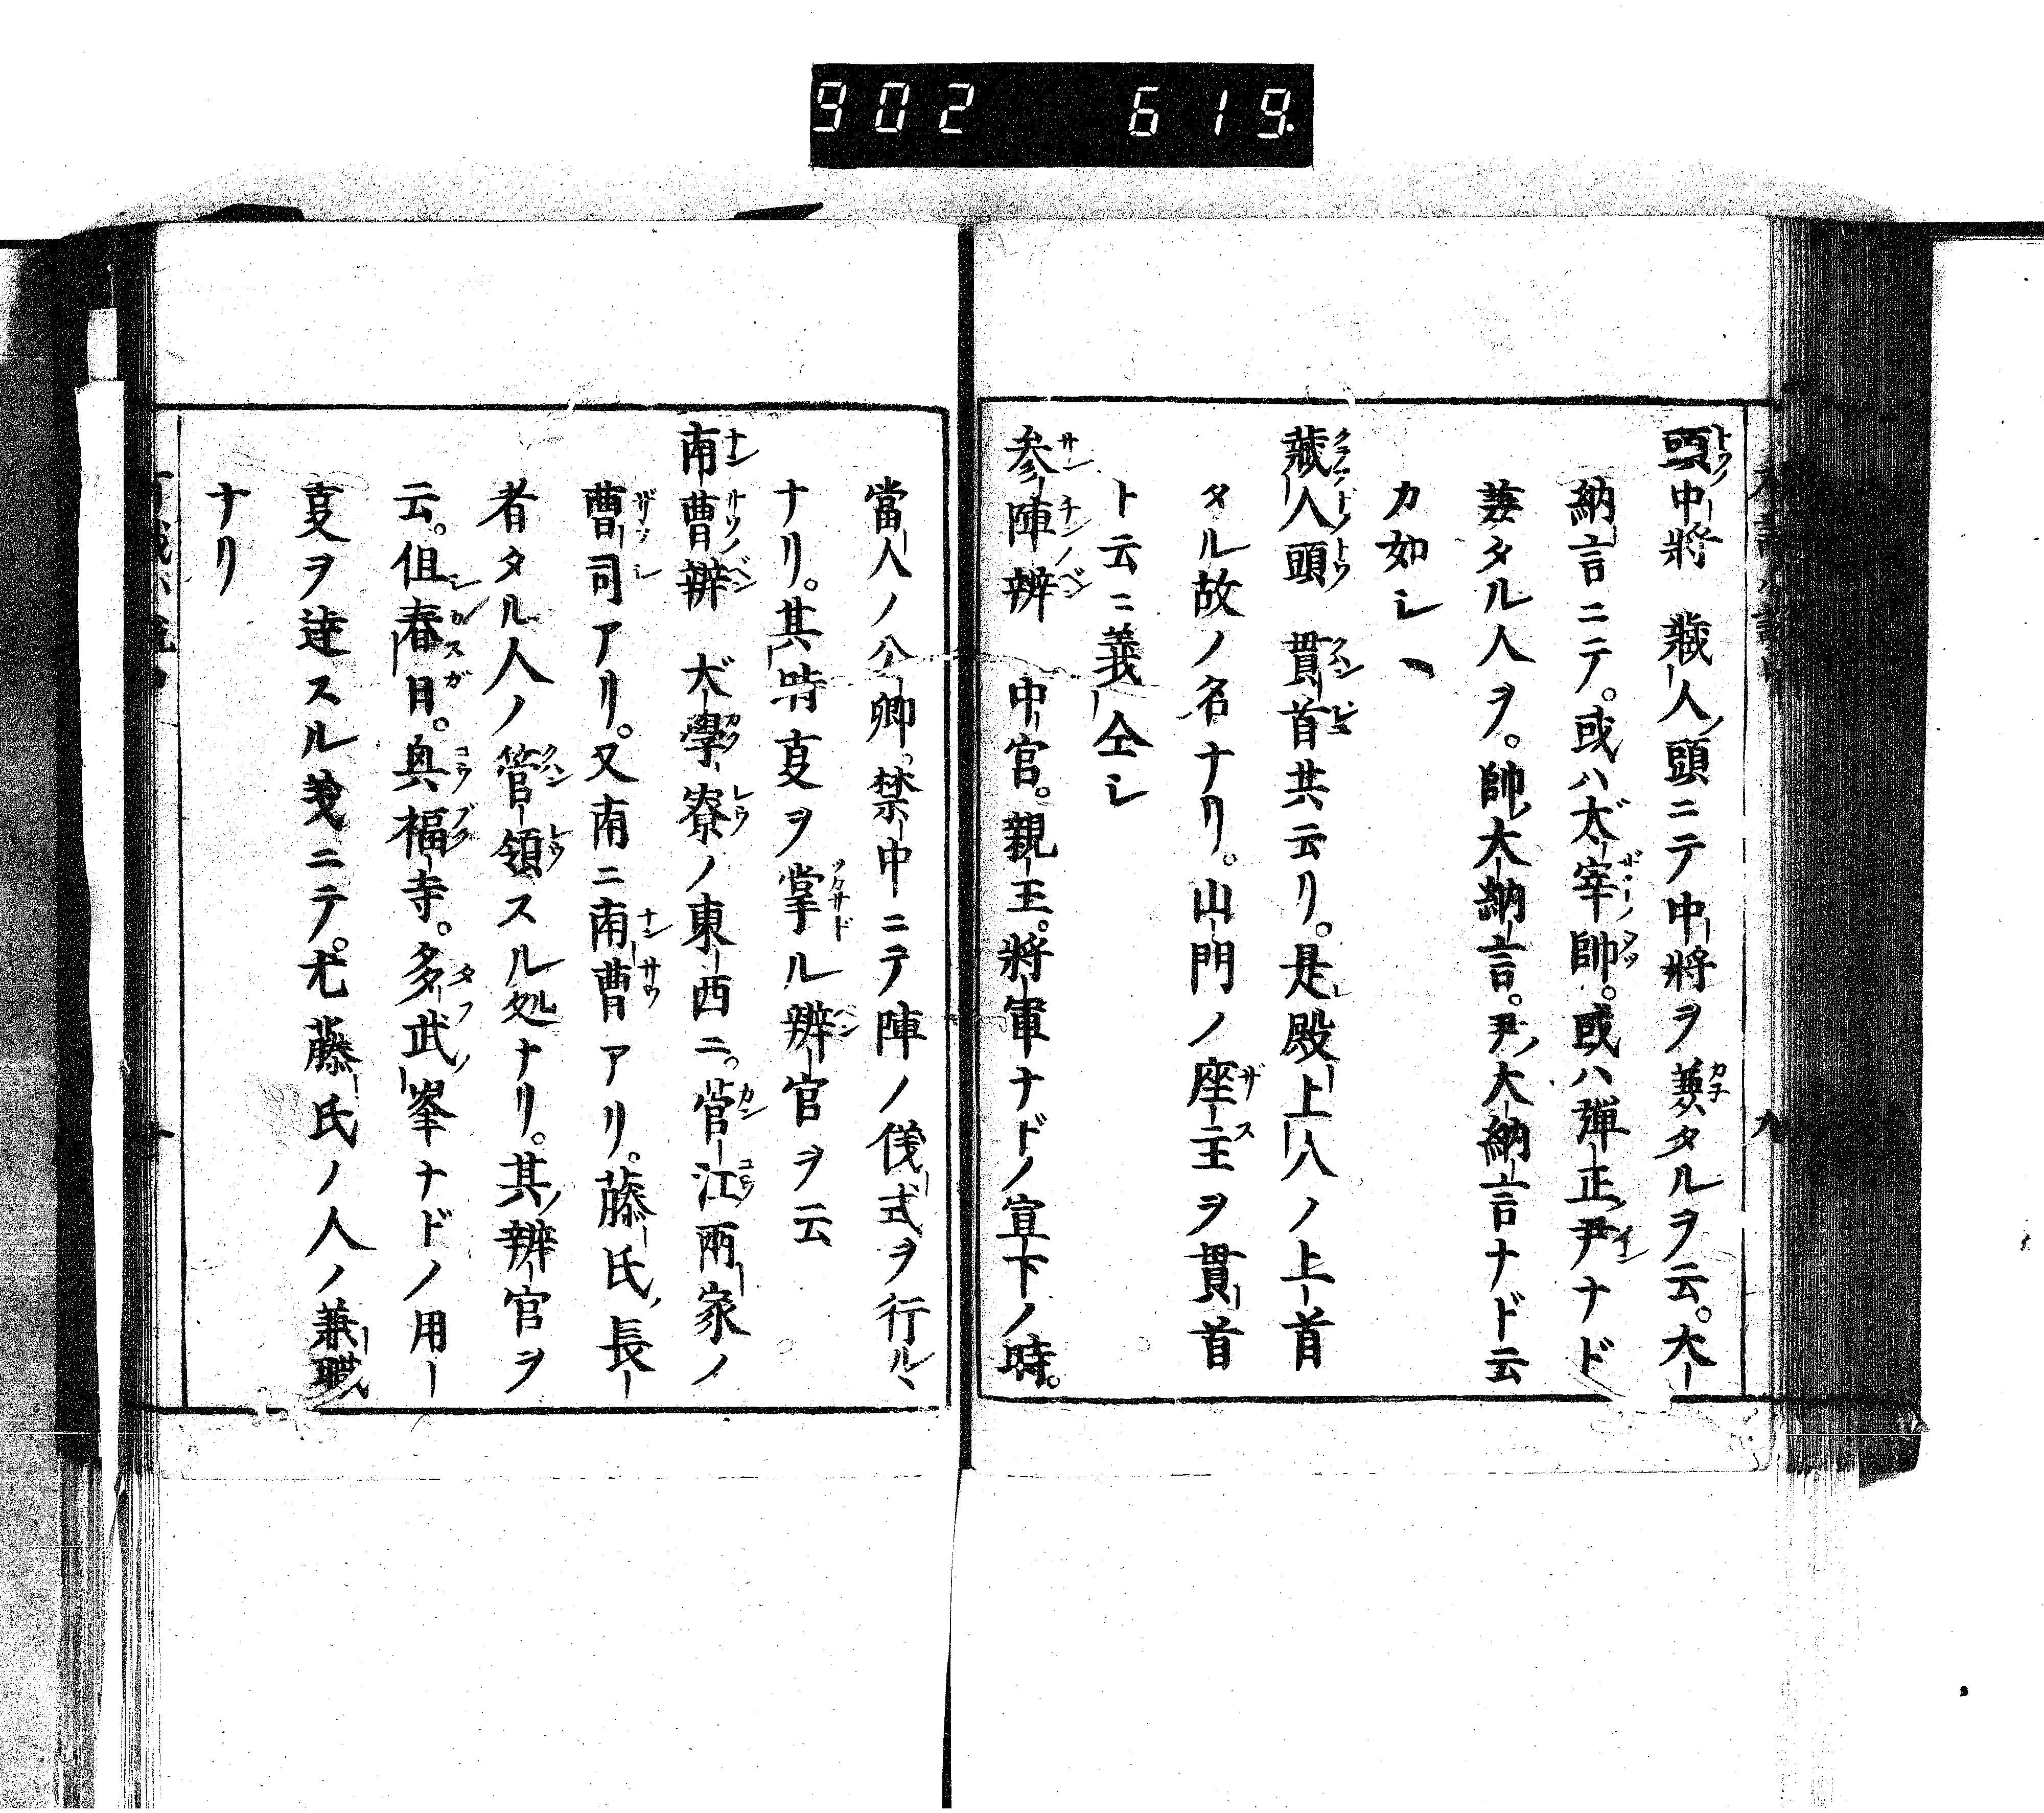 902 619.
頭中將 藏人ノ頭ニテ中將ヲ兼タルヲ云。大
納言ニテ。或ハ太宰帥。或ハ弾正ノ尹ナド
兼タル人ヲ。帥ノ大納言。尹ノ大納言ナド云
カ如シ
藏人頭 貫首共云リ。是レ殿上人ノ上首
タル故ノ名ナリ。山門ノ座主ヲ貫首
ト云ニ義仝シ
参陣辨 中宮。親王。將軍ナドノ宣下ノ時。
當人ノ公卿。禁中ニテ陣ノ儀式ヲ行ル丶
ナリ。其時叓ヲ掌ル辨官ヲ云
南曹辨 大學寮ノ東西ニ。菅江兩家ノ
曹司アリ。又南ニ南曹アリ。藤氏ノ長
者タル人ノ管領スル処ナリ。其ノ辨官ヲ
云。但シ春日。興福寺。多武ノ峯ナドノ用
叓ヲ達スル義ニテ。尤藤氏ノ人ノ兼職
ナリ